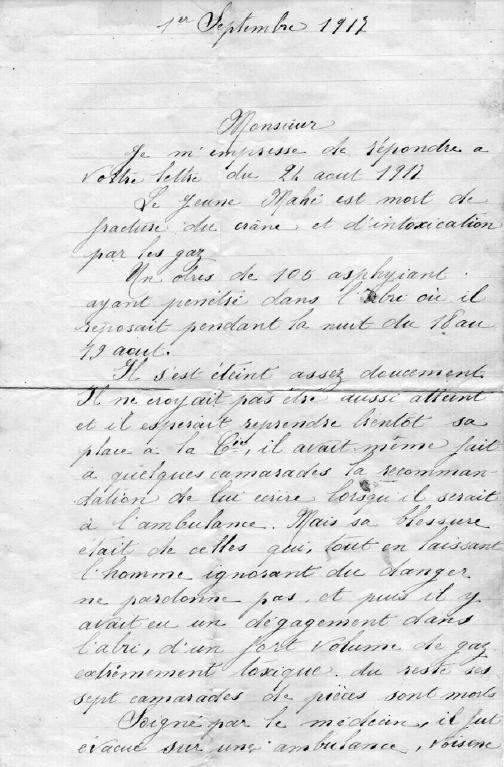 1er Septembre 1917
Monsieur
Je m'empresse de répondre a
votre lettre du 21 aout 1917
Le jeune Mahé est mort de
fracture du crâne et d'intoxication
par les gaz
Un obus de 105 asphyiant
ayant penétré dans l'abri où il
reposait pendant la nuit du 18 au
19 aout.
Il s'est éteint assez doucement
Il ne croyait pas être aussi atteint
et il espérait reprendre bientot sa
place à la Cie, il avait même fait
a quelques camarades la recomman-
dation de lui écrire lorsqu'il serait
à l'ambulance. Mais sa blessure
était de celles qui, tout en laissant
l'homme ignorant du danger
ne pardonne pas, et puis il y
avait eu un dégagement dans
l'abri, d'un fort volume de gaz
extrêmement toxique. du reste ses
sept camarades de pièces sont morts
Soigné par le médecin, il fut
évacué sur une ambulance, voisine